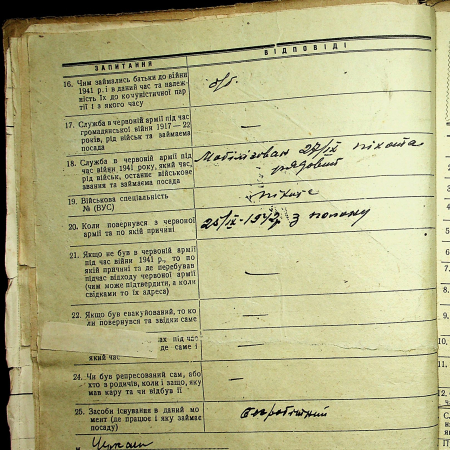 ЗАПИТАННЯ
ВІДПОВІДІ
16. Чим займались батьки до війни
1941 р. і в даний час та належ-
ність їх до комуністичної пар-
тії і з якого часу
б/п.
17. Служба в червоній армії під час
громадянської війни 1917 — 22
років, рід військ та займаема
посада
—
18. Служба в червоній армії під
час війни 1941 року, який час,
рід військ, останнє військове
звання та займаєма посада
Мобілізован 27/IX піхота
рядовий
19. Військова спеціальність
№ (ВУС)
піхота
20. Коли повернувся з червоної
армії та по якій причині
25/IX-1942р з полону
21. Якщо не був в червоній армії
під час війни 1941 р., то по
якій причині та де перебував
підчас відходу червоної армії
(чим може підтвердити, а коли
свідками то їх адреса)
—
22. Якщо був евакуйований, то ко
ли повернувся та звідки саме
—
ах під час
де саме і
який час
—
24. Чи був репресований сам, або
хто з родичів, коли і защо, яку
мав кару та чи відбув її
—
25. Засоби існування в даний мо
мент (де працює і яку займає
посаду)
безробітний
8.
9.
10.
11.
12.